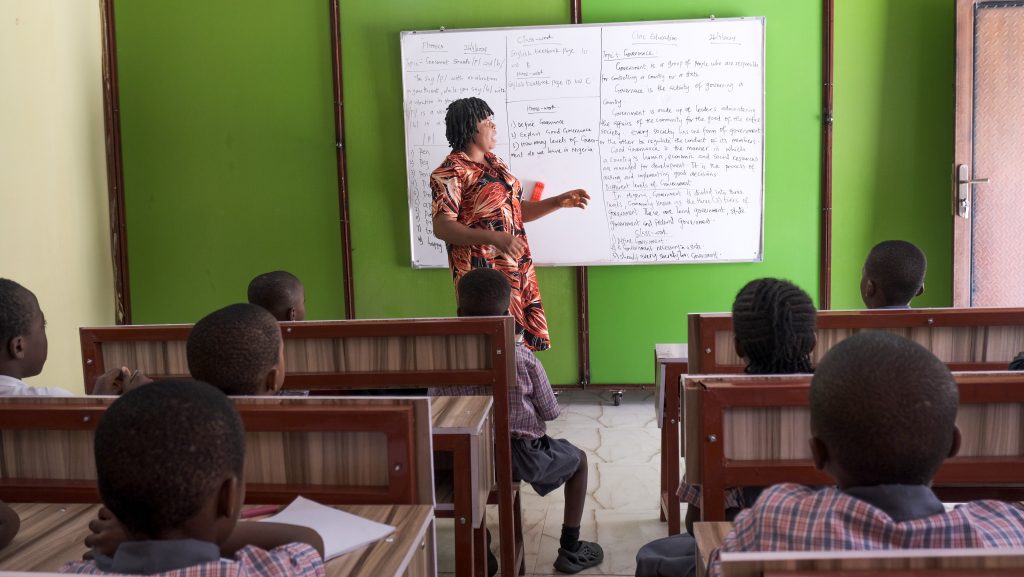 Phonics
Topic - Consonant Sounds /p/ and /b/
You say /p/ with
while you say /b/ with
/p/
1) Pen
2) Peg
happy
Class-work
English textbook page 10
B
Home-work
English textbook page 10 C
Home-work
1) Define Governance
2) Explain Good Governance
3) How many levels of Government do we have in Nigeria
Civic Education
Topic: Governance
Government is a group of people who are responsible
for controlling a country or a state.
Governance is the activity of governing a
Country.
Government is made up of leaders administering
the affairs of the community for the good of the entire
Society. Every society has one form of government
or the other to regulate the conduct of its members.
Good Governance is the manner in which
a country's human, economic and social resources
are managed for development. It is the process of
making and implementing good decisions.
Different levels of Government
In Nigeria, Government is divided into three
levels, commonly known as the three (3) tiers of
Government. These are local government, state
government and federal government.
Class-work
Define Government
Government necessary in a state
3) Should every society have Government